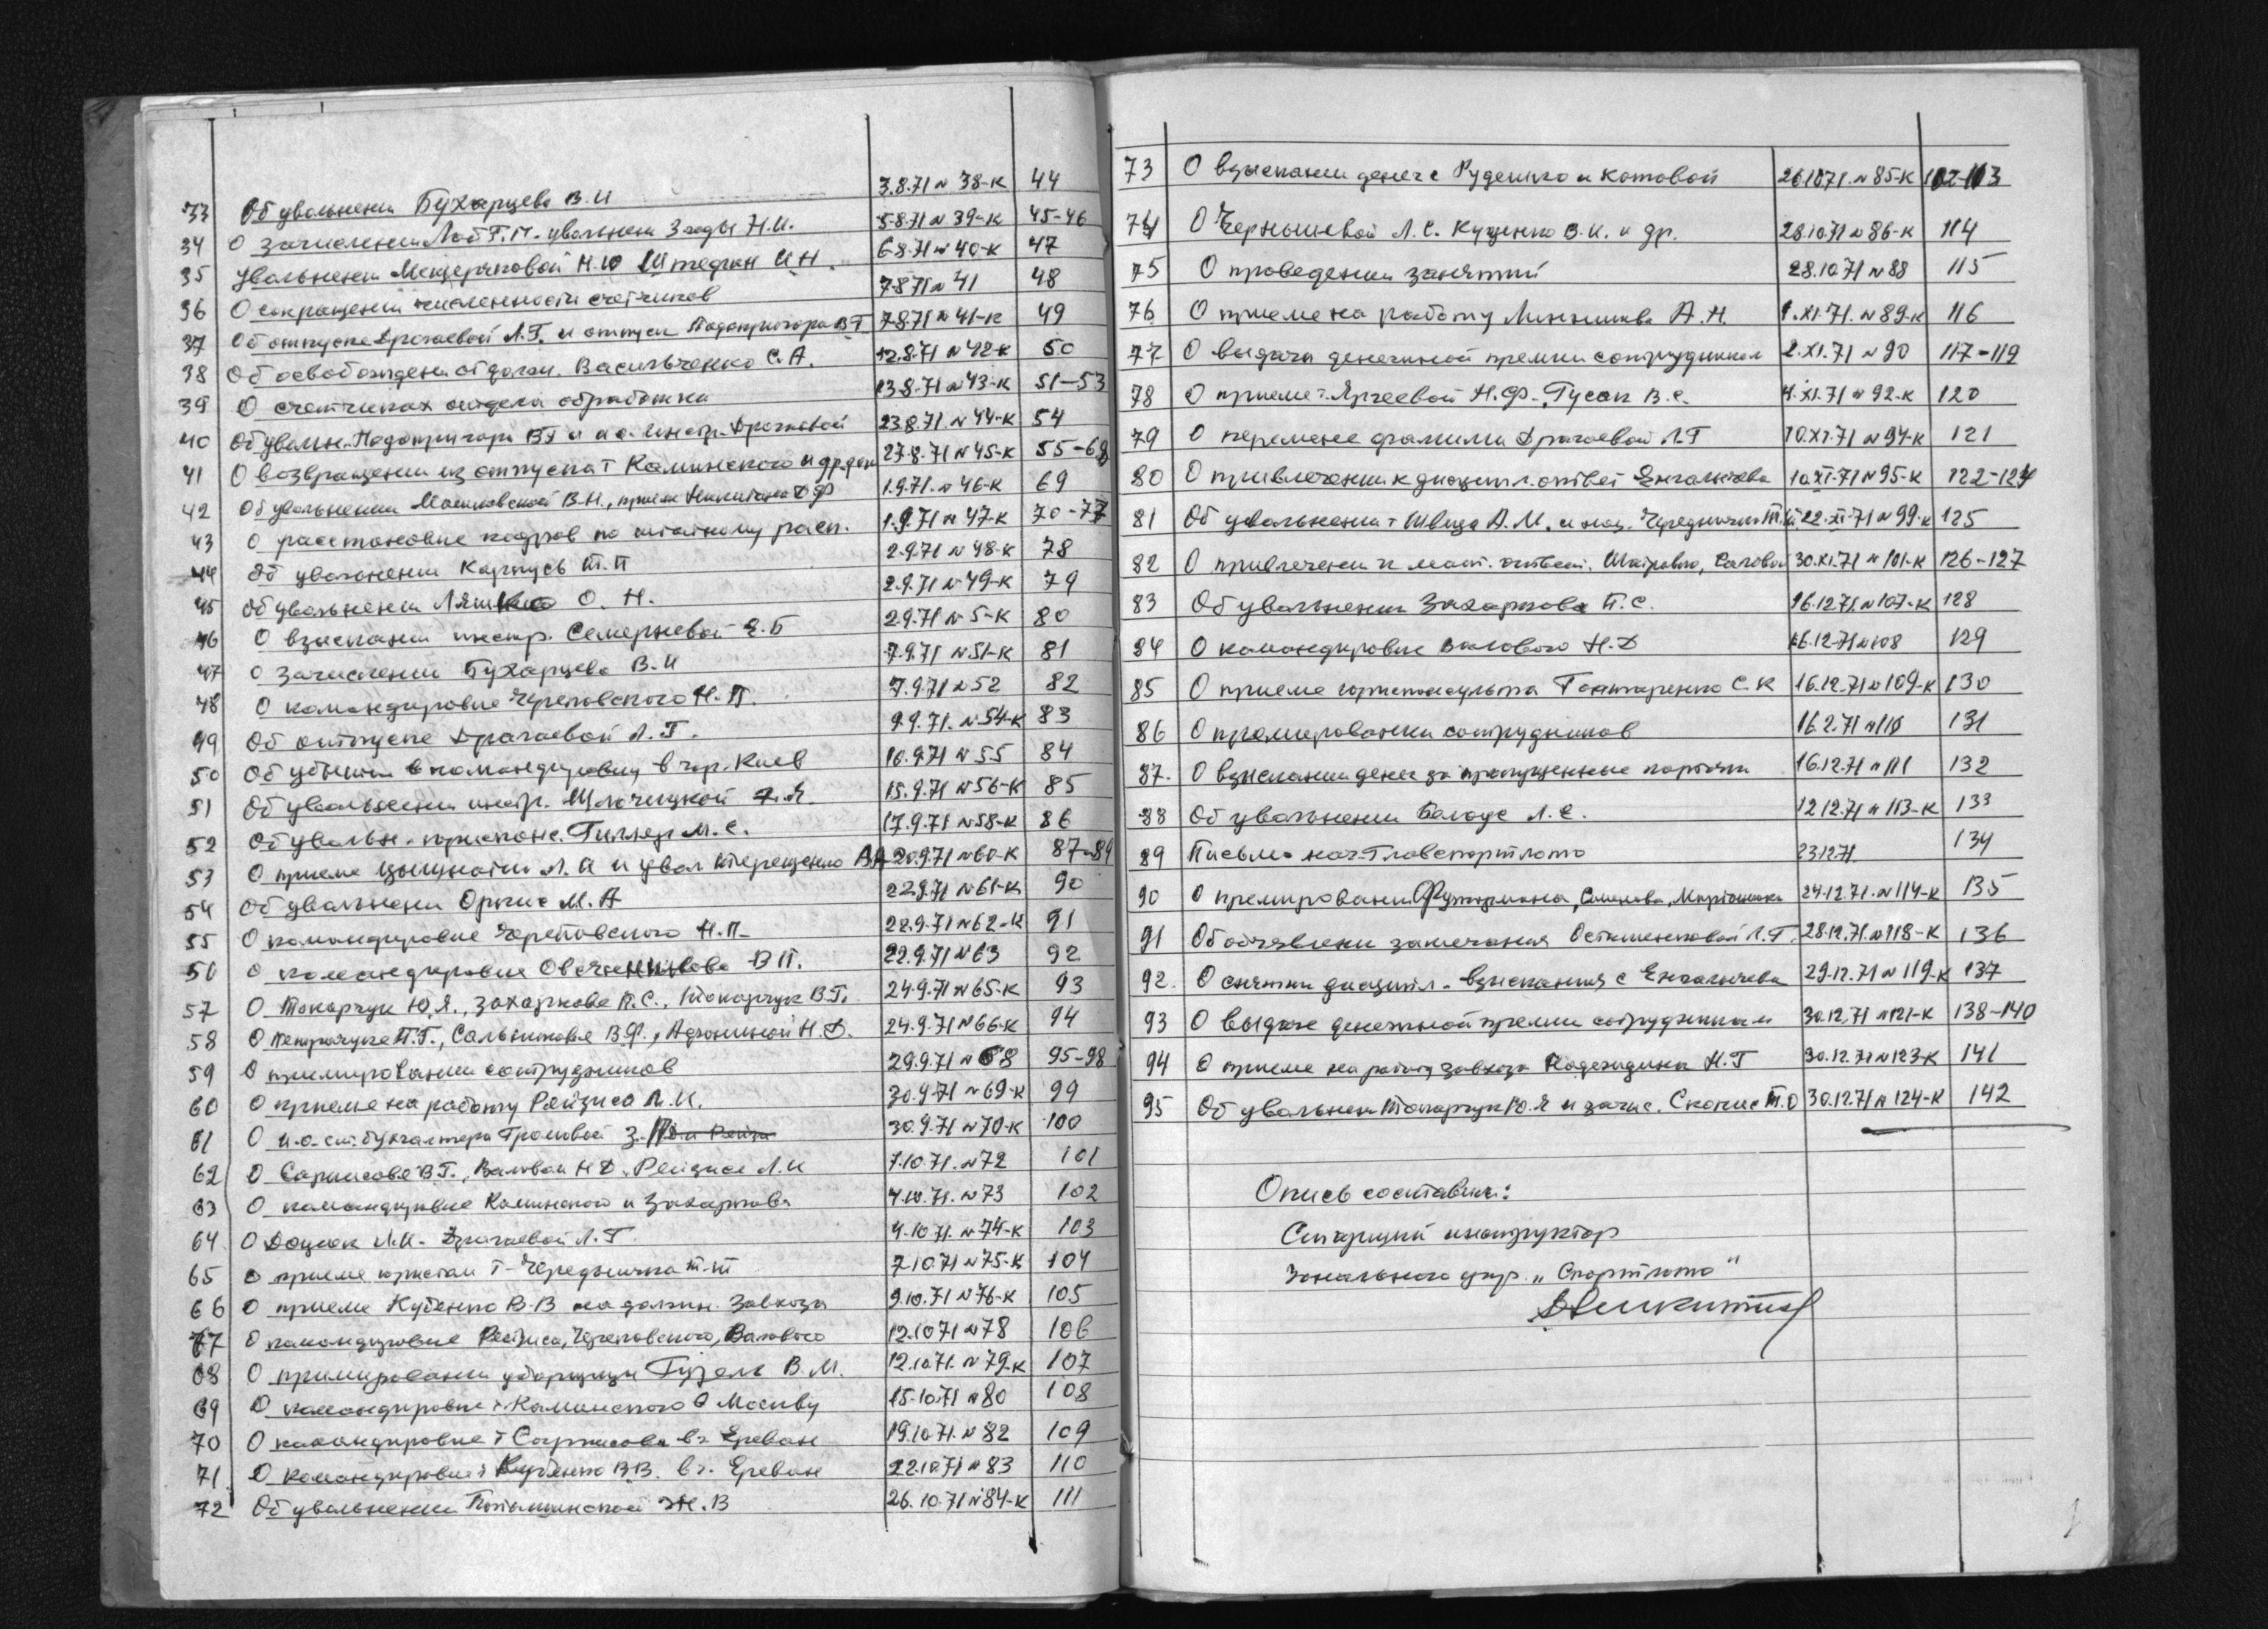 33 Об увольнении Бухарцева В.И 3.8.71 № 38-к 44
34 О зачислении Лоб Г.П. увольнен Заеды Н.И. 5.8.71 № 39-к 45-46
35 Увольнении Мещеряковой Н.Ю Штефан И.Н. 6.8.71 № 40-к 47
36 О сокращении численности счетчиков 7.8.71 № 41 48
37 Об отпуске Драчаевой Л.Г. и отпуск Подопригора В.Г 7.8.71 № 41-к 49
38 Об освобожден от должн. Васильченко С.А. 12.8.71 № 42-к 50
39 О счетчиках отдела обработки 13.8.71 № 43-к 51-53
40 Об увольн. Подопригора ВГ и и.о. инстр. Драчаевой 23.8.71 № 44-к 54
41 О возвращении из отпуска т Каминского и др. 27.8.71 № 45-к 55-68
42 Об увольнении В.Н., прием Никитина Д Ф 1.9.71 № 46-к 69
43 О расстановке кадров по штатному расп. 1.9.71 № 47-к 70-77
44 Об увольнении Карпусь Т.П 2.9.71 № 48-к 78
45 Об увольнении Ляшко О.Н. 2.9.71 № 49-к 79
46 О взыскании инстр. Семерневой Е.Б 2.9.71 № 5-к 80
47 О зачислении Бухарцева В.И 7.9.71 № 51-к 81
48 О командировке Череповского Н.П. 7.9.71 № 52 82
49 Об отпуске Драчаевой Л.Г. 9.9.71. № 54-к 83
50 Об убытии в командировку в гор. Киев 10.9.71 № 55 84
51 Об увольнении инстр. 15.9.71 № 56-к 85
52 Об увольн. юрисконс. Гиллер М.С. 17.9.71 № 58-к 86
53 О приеме Л.И и увол Терещенко АА 20.9.71 № 60-к 87-89
54 Об увольнении М.А 22.9.71 № 61-к 90
55 О командировке Череповского Н.П. 22.9.71 № 62-к 91
56 О командировке Овчинникова В П. 22.9.71 № 63 92
57 О Токарчук Ю.Я., Захаркове П.С., Токарчук В.Г. 24.9.71 № 65-к 93
58 О Петрачуке П.Г., Сальникове В.Ф., Афониной Н.Д. 24.9.71 № 66-к 94
59 О премировании сотрудников 29.9.71 № 68 95-98
60 О приеме на работу Рейзиса Л.И. 30.9.71 № 69-к 99
61 О и.о. ст. бухгалтера Громовой З. 30.9.71 № 70-к 100
62 О Саркисове В.Г., Валовом Н Д. Рейзисе Л.И 1.10.71. № 72 101
63 О командировке Каминского и Захаркова 4.10.71. № 73 102
64 О Доцюк Л.И. Драчаевой Л.Г. 4.10.71. № 74-к 103
65 О приеме юристом т. Чередничка Т.Т 7.10.71 № 75-к 104
66 О приеме Куценко В.В на должн. завхоза 9.10.71 № 76-к 105
67 О командировке Рейзиса, Череповского, Валового 12.10.71 № 78 106
68 О премировании уборщицы Гузель В.М. 12.10.71. № 79-к 107
69 О командировке т. Каминского в Москву 15.10.71 № 80 108
70 О командировке т Саркисова в г. Ереван 19.10.71. № 82 109
71 О командировке т Куценко В.В. в г. Ереван 22.10.71 № 83 110
72 Об увольнении Ж.В 26.10.71 № 84-к 111
73 О взыскании денег с Руденко и Котовой 26.10.71. № 85-к 112-113
74 О Чернышевой Л.С. Куценко В.И. и др. 28.10.71 № 86-к 114
75 О проведении занятий 28.10.71 № 88 115
76 О приеме на работу А.Н. 1.XI.71. № 89-к 116
77 О выдаче денежной премии сотрудникам 2.XI.71 № 90 117-119
78 О приеме т. Н.Ф. Гусак В.С. 4.XI.71 № 92-к 120
79 О перемене фамилии Драчаевой Л.Г 10.XI.71 № 94-к 121
80 О привлечении к дисципл. ответ Енгалычева 10.XI.71 № 95-к 122-124
81 Об увольнении т Швеца А.М. и наз. Чередничка Т.Т 22.XI.71 № 99-к 125
82 О привлечении к мат. ответст. 30.XI.71 № 101-к 126-127
83 Об увольнении Захаркова П.С. 16.12.71 № 107-к 128
84 О командировке Валового Н.Д 16.12.71 № 108 129
85 О приеме юрисконсульта Гонтаренко С.К 16.12.71 № 109-к 130
86 О премировании сотрудников 16.2.71 № 110 131
87. О взыскании денег за пропущенные карточки 16.12.71 № 111 132
88 Об увольнении Белоус Л.Е. 12.12.71 № 113-к 133
89 Письмо нач. Главспортлото 23.12.71 134
90 О премировании Футермана, Семенова, 24.12.71. № 114-к 135
91 Об объявлении замечания Осташенковой Л.Г. 28.12.71. № 118-к 136
92. О снятии дисципл. взыскания с Енгалычева 29.12.71 № 119-к 137
93 О выдаче денежной премии сотрудникам 30.12.71 № 121-к 138-140
94 О приеме на работу завхоза Надеждина Н.Г 30.12.71 № 123-к 141
95 Об увольнен Токарчук Ю.Я и зачис. Скопис Т.О 30.12.71 № 124-к 142
Опись составил:
Старший инструктор
Зонального упр. „Спортлото"
ДНикитин